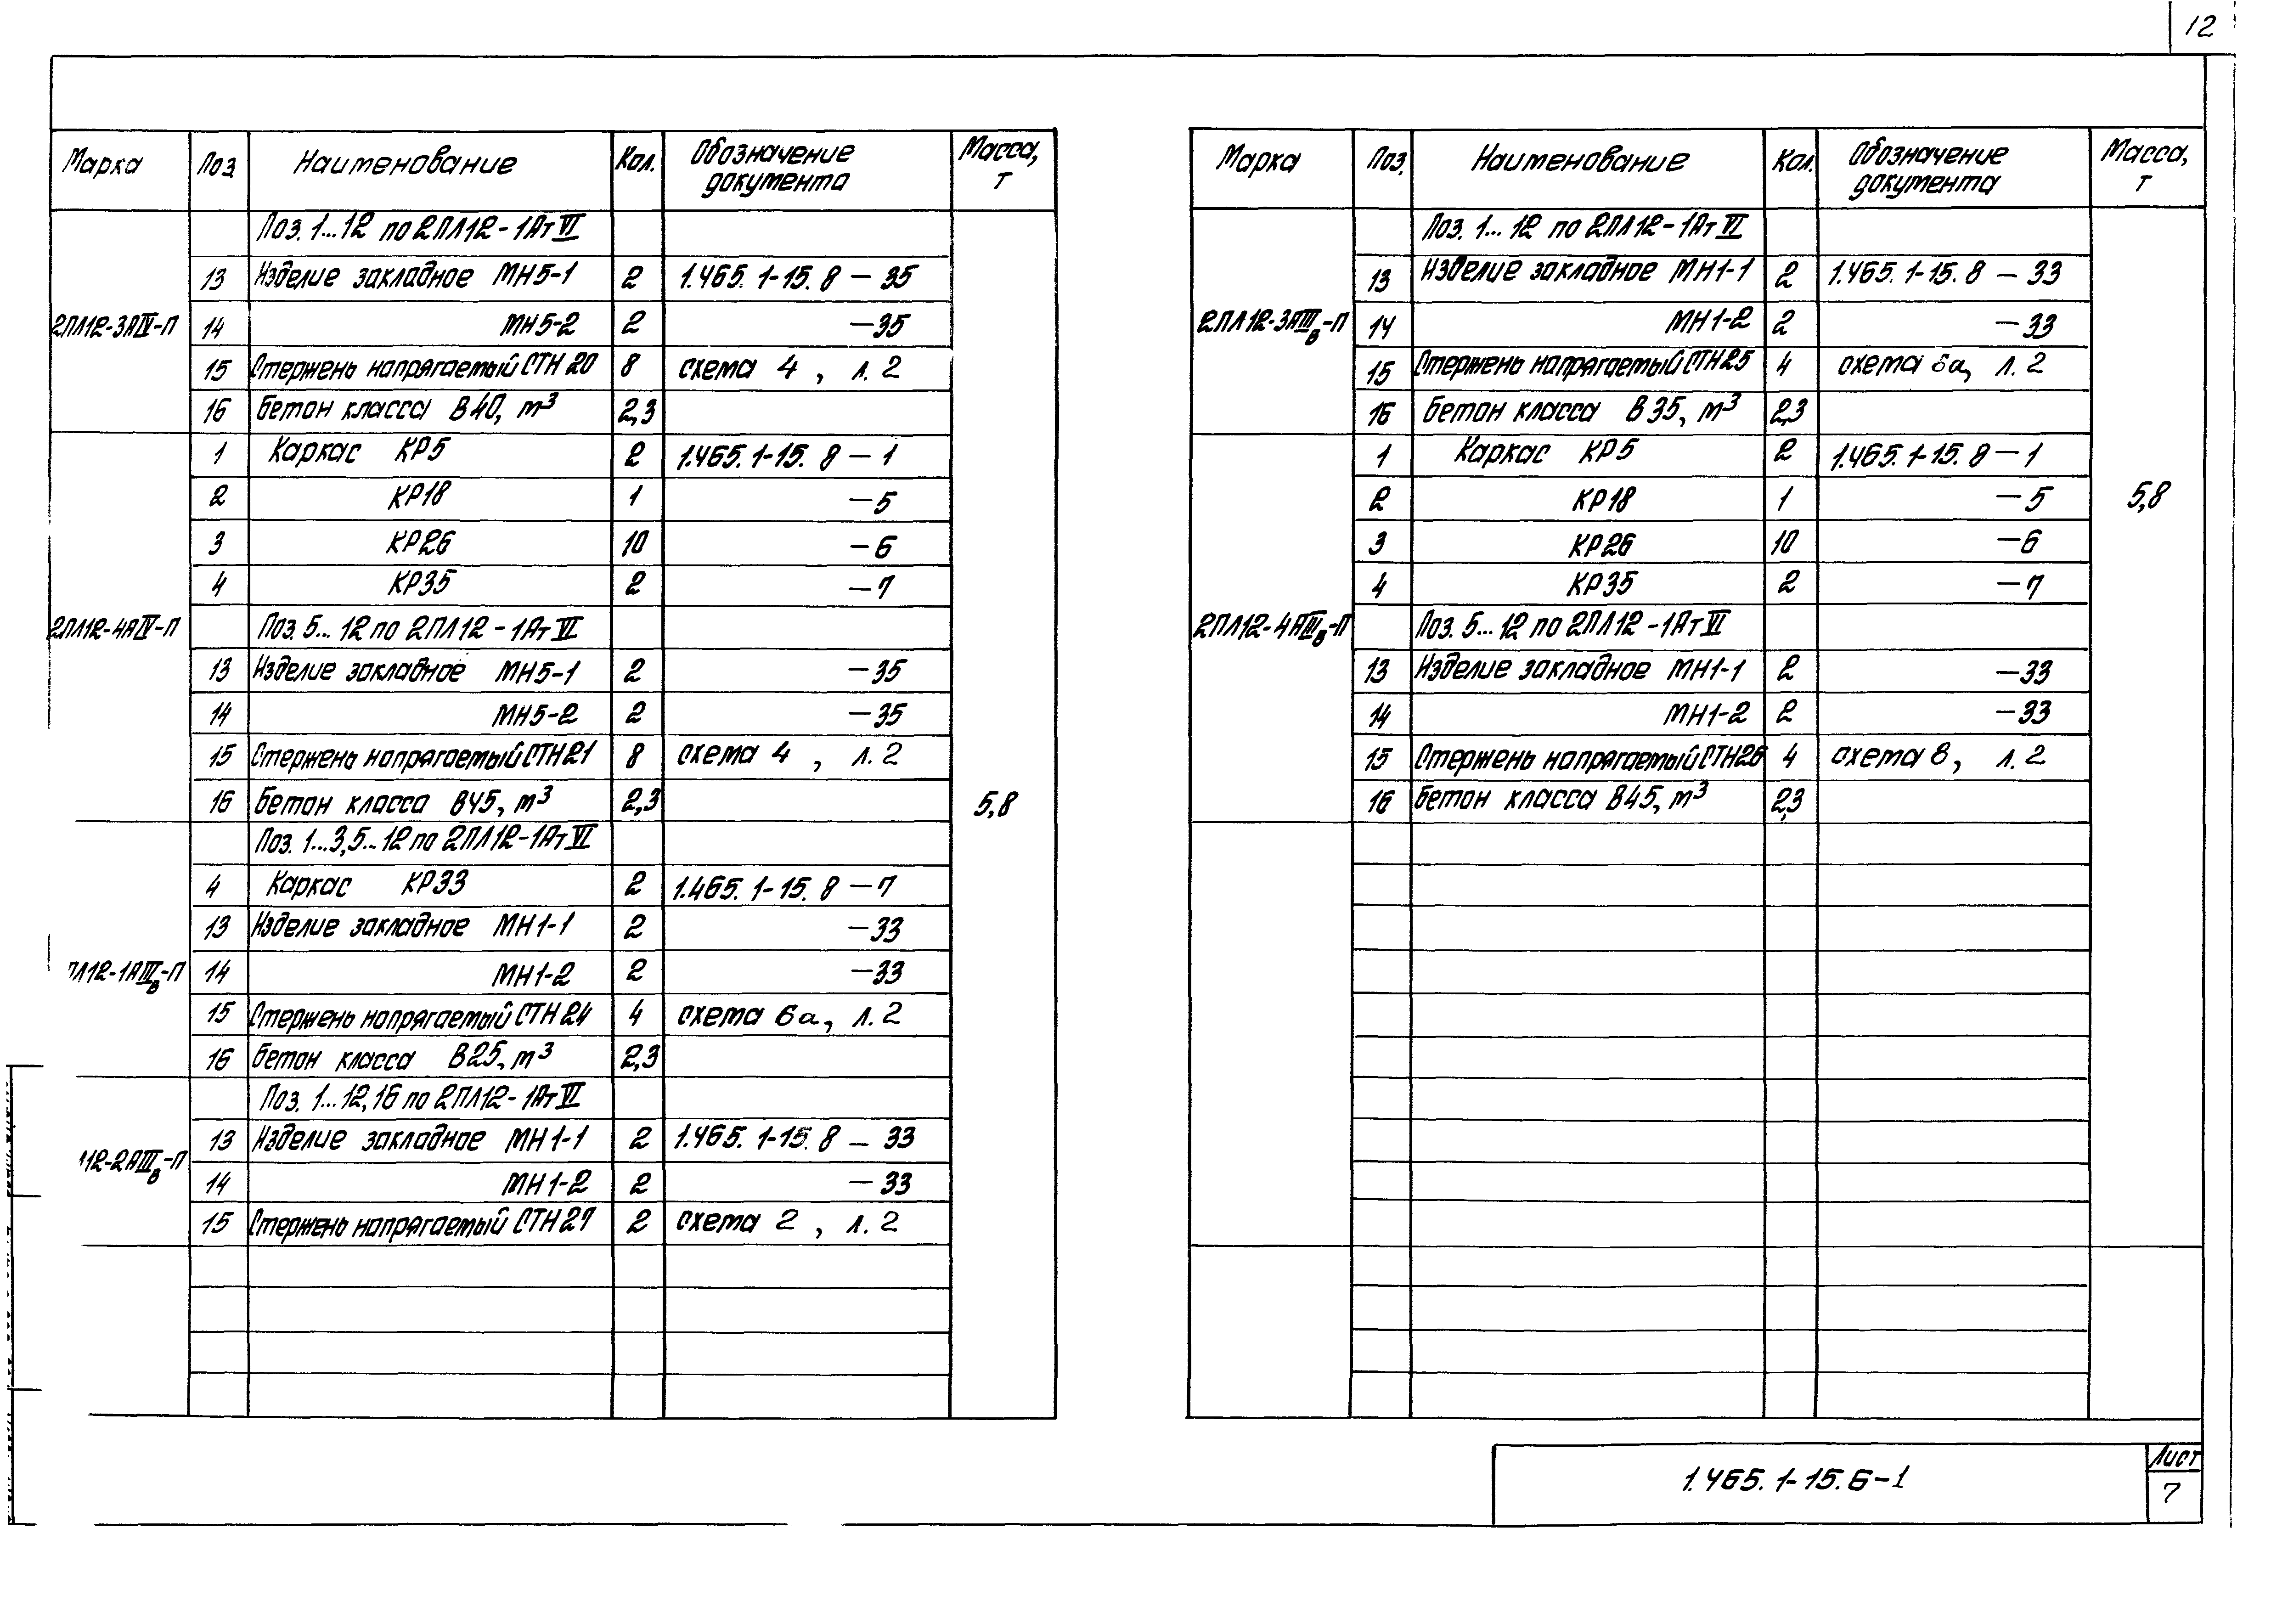 12
Марка Поз. Наименование Кол. Обозначение документа Масса, т
Поз. 1...12 по 2ПЛ12-1АтVI
2ПЛ12-3АIV-П
13 Изделие закладное МН5-1 2 1.465.1-15.8 - 35
14 МН5-2 2 -35
15 Стержень напрягаемый СТН20 8 схема 4, л.2
16 Бетон класса В40, м³ 2,3
2ПЛ12-4АIV-П
1 Каркас КР5 2 1.465.1-15.8 - 1
2 КР18 1 -5
3 КР26 10 -6
4 КР35 2 -7
Поз. 5...12 по 2ПЛ12-1АтVI
13 Изделие закладное МН5-1 2 -35
14 МН5-2 2 -35
15 Стержень напрягаемый СТН21 8 схема 4, л.2
16 Бетон класса В45, м³ 2,3
5,8
Поз. 1...3,5...12 по 2ПЛ12-1АтVI
ПЛ12-1АIIIв-П
4 Каркас КР33 2 1.465.1-15.8 -7
13 Изделие закладное МН1-1 2 -33
14 МН1-2 2 -33
15 Стержень напрягаемый СТН24 4 схема 6а, л.2
16 Бетон класса В25, м³ 2,3
Поз. 1...12,16 по 2ПЛ12-1АтVI
12-2АIIIв-П
13 Изделие закладное МН1-1 2 1.465.1-15.8 - 33
14 МН1-2 2 -33
15 Стержень напрягаемый СТН27 2 схема 2, л.2
Марка Поз. Наименование Кол. Обозначение документа Масса, т
Поз. 1...12 по 2ПЛ12-1АтVI
2ПЛ12-3АIIIв-П
13 Изделие закладное МН1-1 2 1.465.1-15.8 - 33
14 МН1-2 2 -33
15 Стержень напрягаемый СТН25 4 схема 6а, л.2
16 Бетон класса В35, м³ 2,3
2ПЛ12-4АIIIв-П
1 Каркас КР5 2 1.465.1-15.8 - 1
2 КР18 1 -5
5,8
3 КР26 10 -6
4 КР35 2 -7
Поз. 5...12 по 2ПЛ12-1АтVI
13 Изделие закладное МН1-1 2 -33
14 МН1-2 2 -33
15 Стержень напрягаемый СТН26 4 схема 8, л.2
16 Бетон класса В45, м³ 2,3
1.465.1-15.6-1
Лист
7